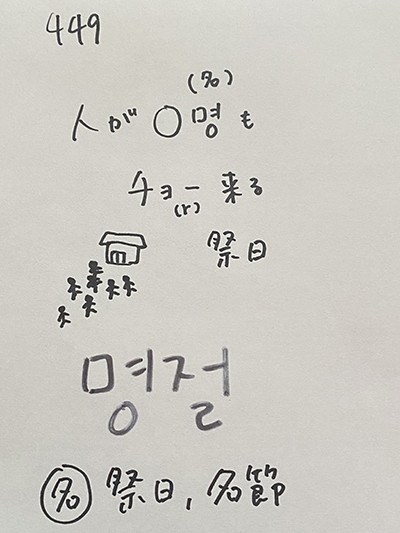 449
(名)
人が〇명も
チョー来る
(r)
祭日
명절
名 祭日,名節